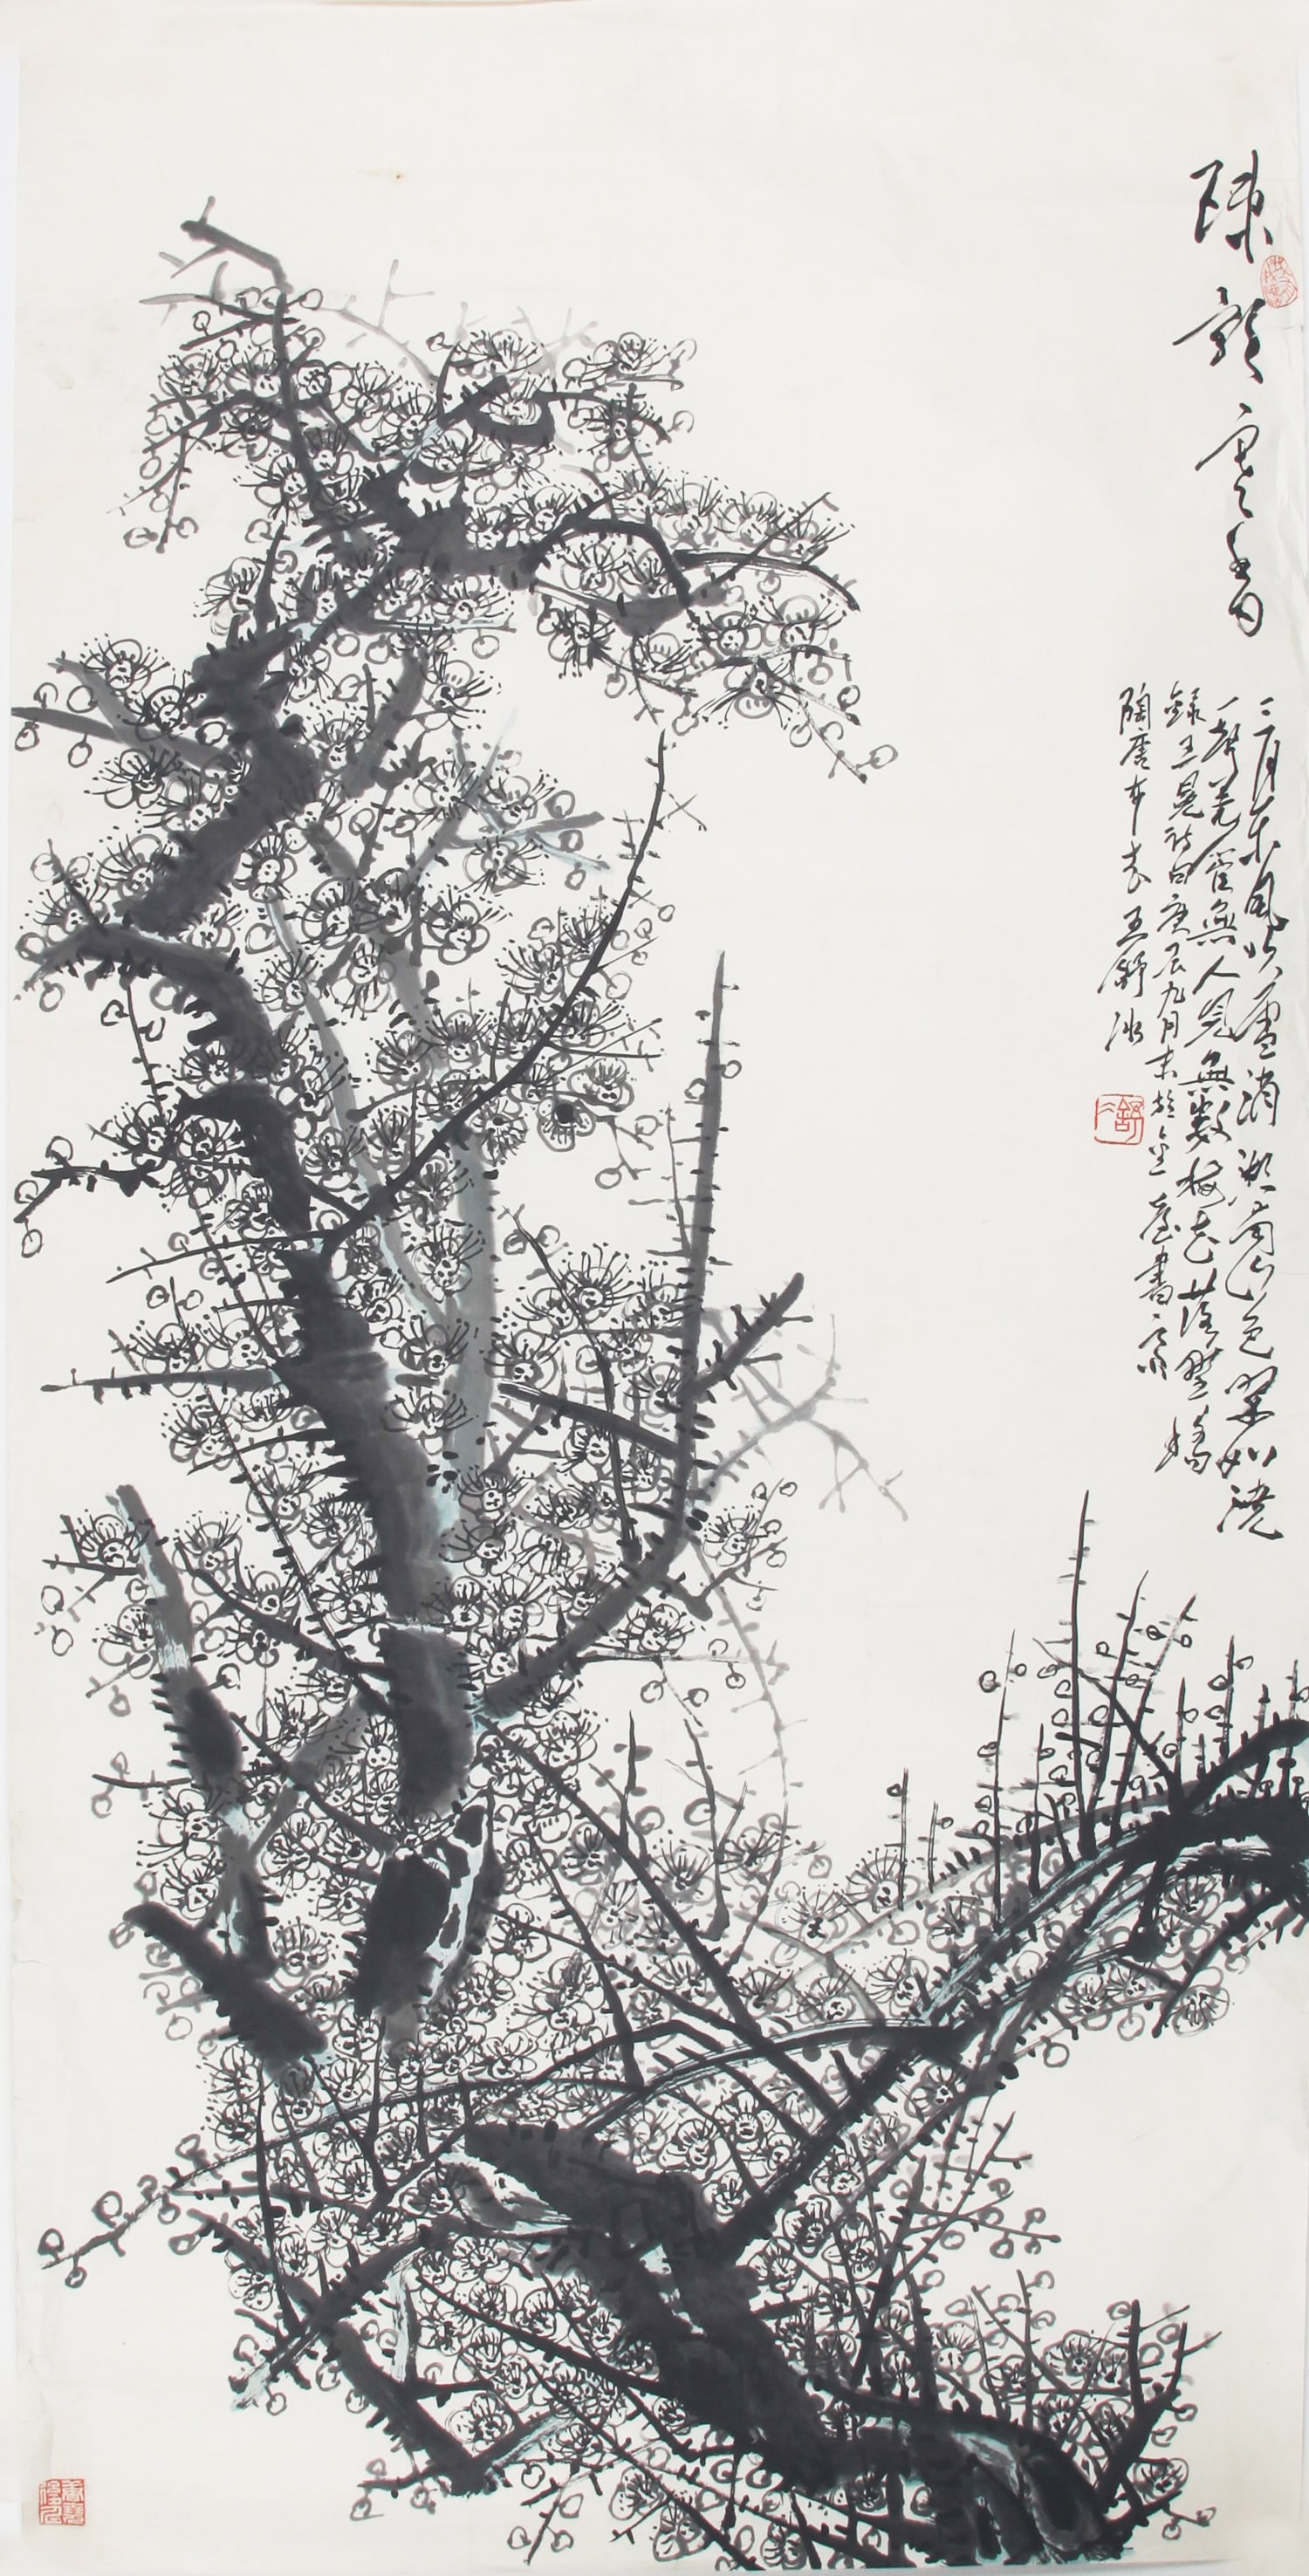 疎影寒香
三月東風吹雪消湖南山色翠如澆
一聲羌管無人見無數梅花落野橋
錄王冕詩句庚辰九月末於金臺書齋
陶唐布衣王舒冰